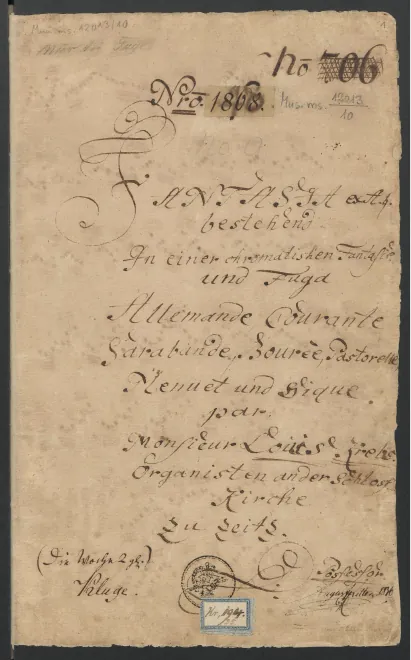 Mus. ms. 12013/10
No 706
Nro. 1868.
Mus. ms. 12013
10
FANTASIA ex A♮.
bestehend
In einer chromatishen Fantasie
und Fuga
Allemande Courante
Sarabande, Bourèe, Pastorelle
Menuet und Gique.
par.
Monsieur Louis Krebs.
Organisten an der Schlos
Kirche
zu Zeitz.
(Die Woche 2 gl.)
Kluge.
Possessor